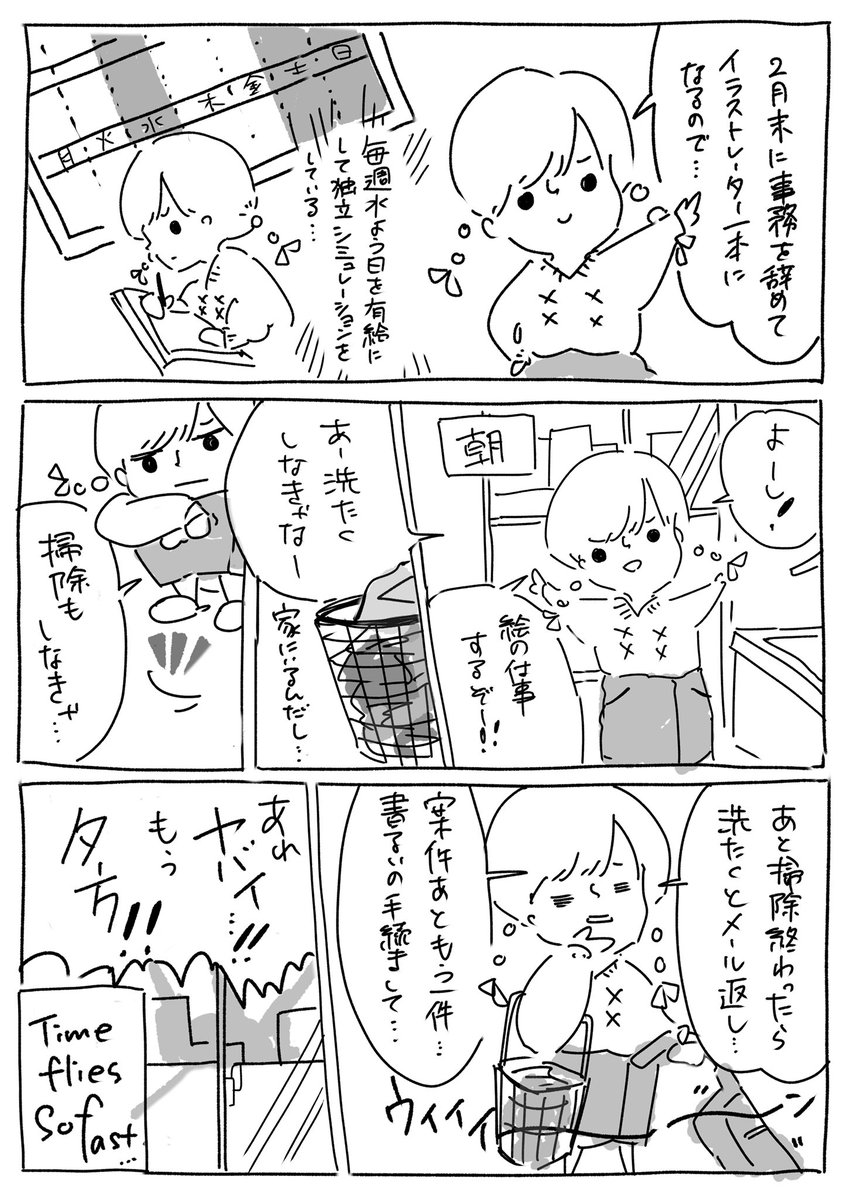 2月末に事務を辞めて
イラストレーター一本に
なるので…
毎週水よう日を有給に
して独立シミュレーションを
している…
月火水木金土日
よーし!
朝
絵の仕事
するぞー!!
あー洗たく
しなきゃなー
家にいるんだし…
掃除も
しなきゃ…
あと掃除終わったら
洗たくとメール返し…
案件あともう一件…
書るいの手続きして…
ウィィィーン
あれ
ヤバイ…!!
もう
夕方!!
Time
flies
so fast…